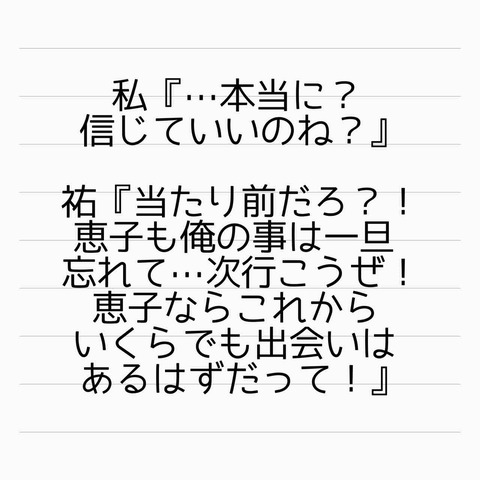 私『…本当に？
信じていいのね？』
祐『当たり前だろ？！
恵子も俺の事は一旦
忘れて…次行こうぜ！
恵子ならこれから
いくらでも出会いは
あるはずだって！』